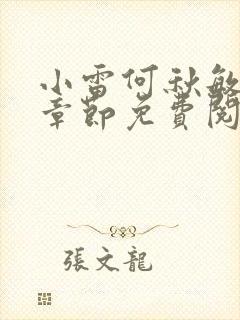 小雷何秋敏
章節免費閱
張文龍